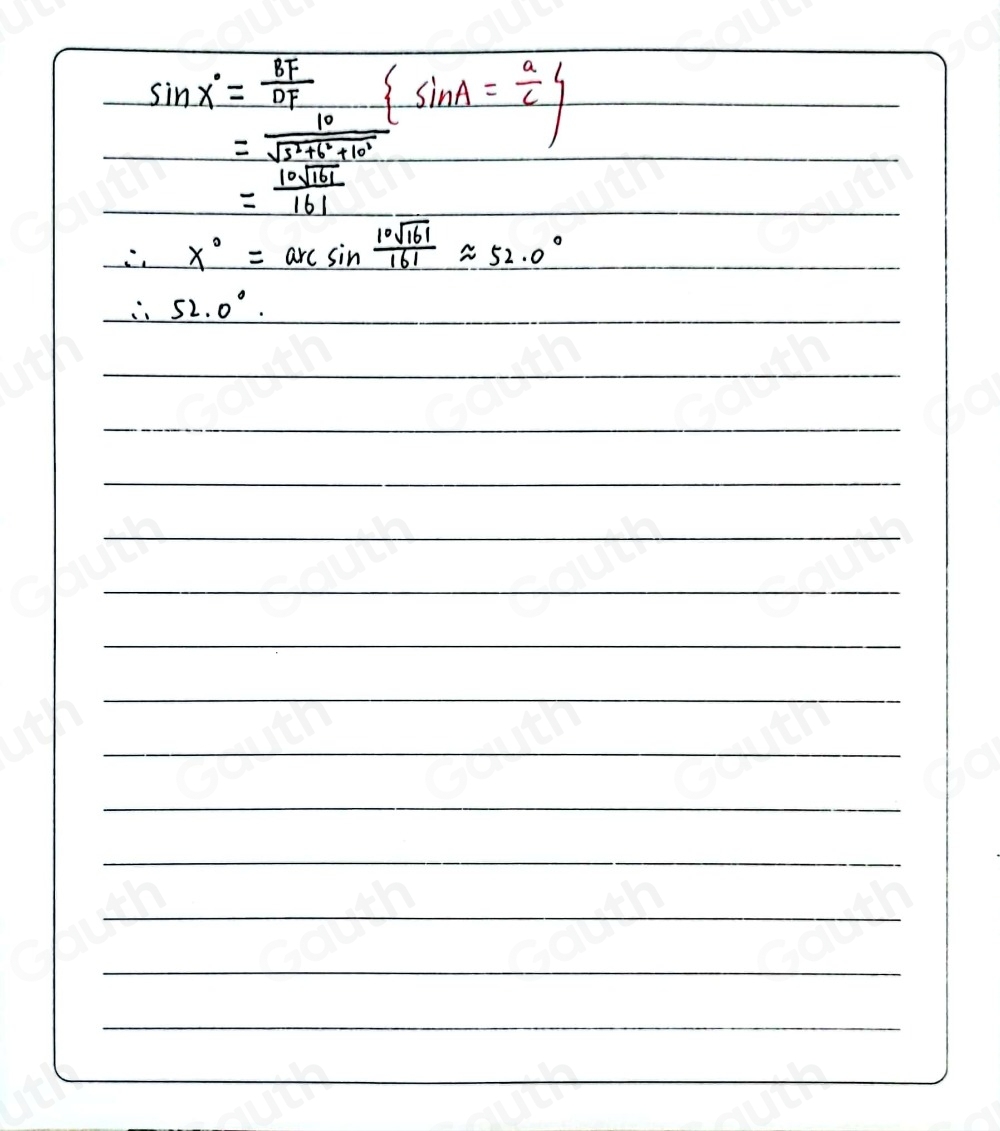 sin x° = BF/DF { sinA = a/c }
= 10/√(5²+6²+10²)
= 10√161/161
∴ x° = arc sin 10√161/161 ≈ 52.0°
∴ 52.0°.
Gauth